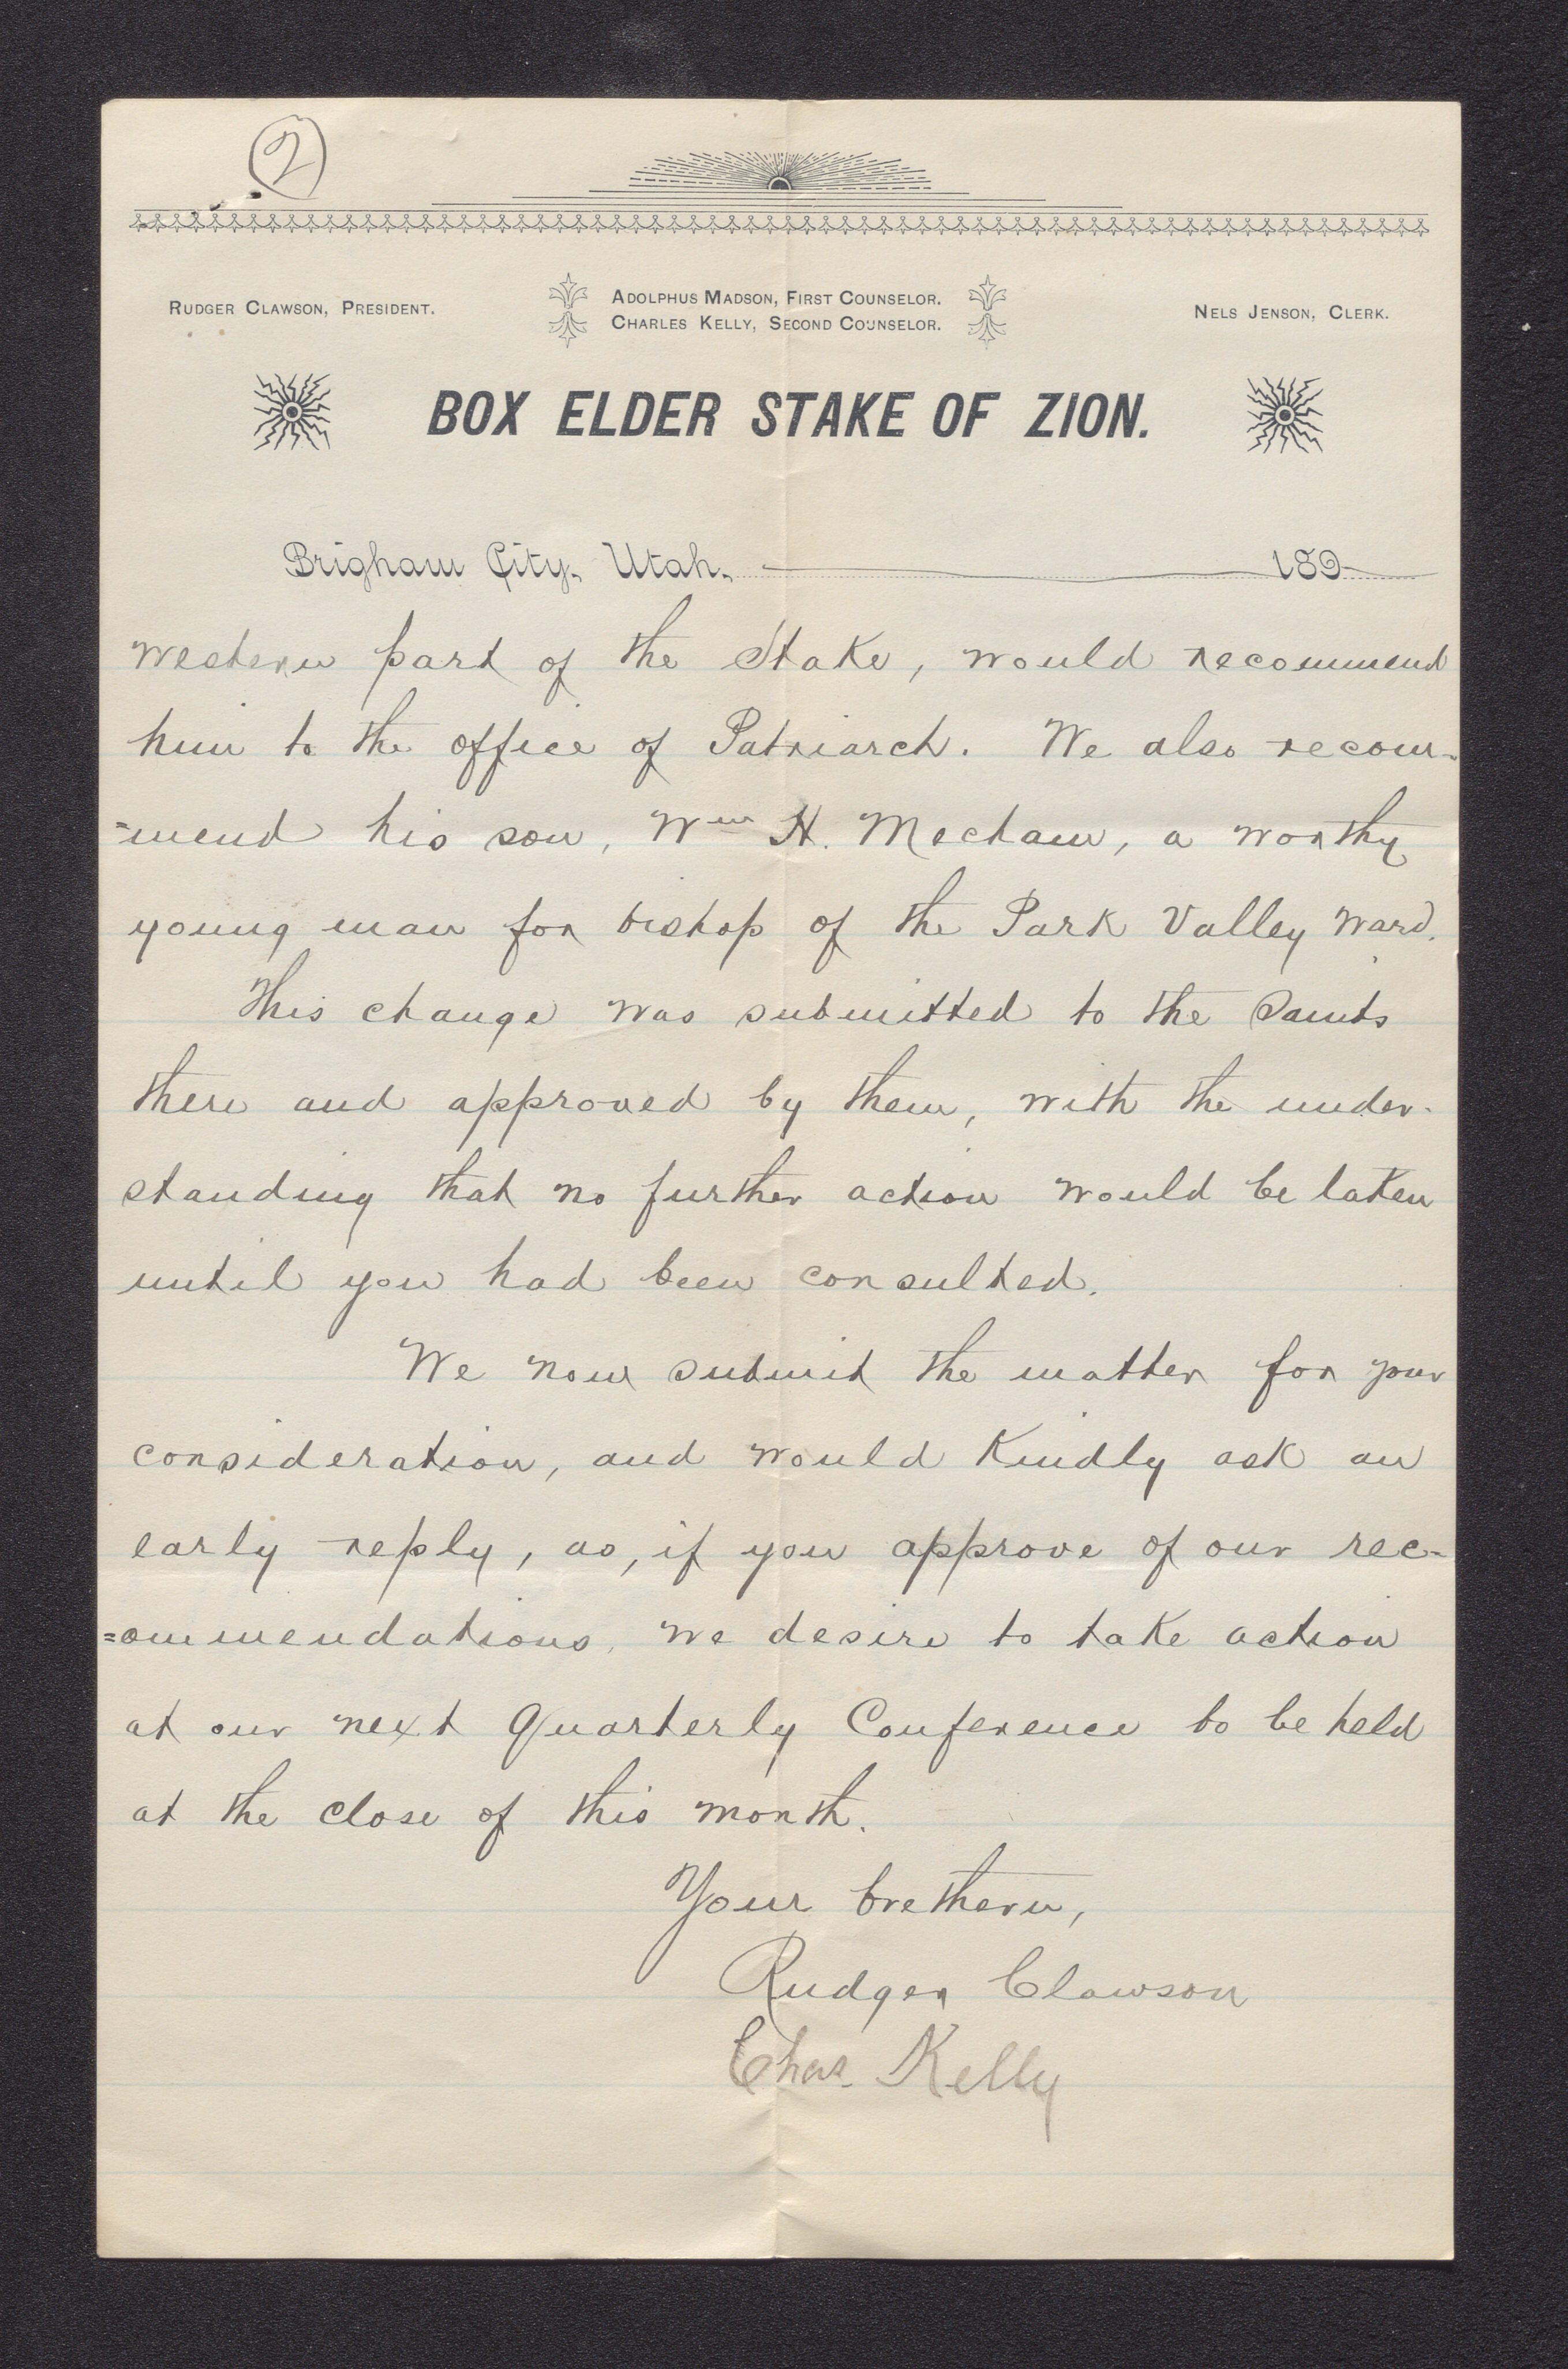 2
RUDGER CLAWSON, PRESIDENT.
ADOLPHUS MADSON, FIRST COUNSELOR.
CHARLES KELLY, SECOND COUNSELOR.
NELS JENSON, CLERK.
BOX ELDER STAKE OF ZION.
Brigham City, Utah, 189
western part of the Stake, would recommend
him to the office of Patriarch. We also recom-
=mend his son, Wm H. Mecham, a worthy
young man for bishop of the Park Valley Ward.
This change was submitted to the Saints
there and approved by them, with the under-
standing that no further action would be taken
until you had been consulted.
We now submit the matter for your
consideration, and would kindly ask an
early reply, as, if you approve of our rec-
=ommendations, we desire to take action
at our next Quarterly Conference to be held
at the close of this month.
Your brethern,
Rudger Clawson
Chas. Kelly